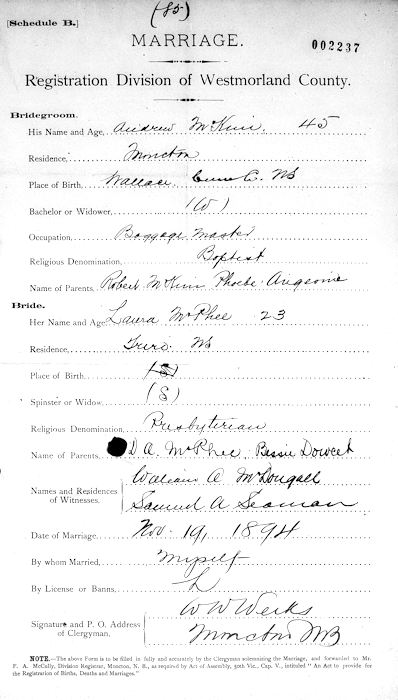 (85)
[Schedule B.]
MARRIAGE.
002237
Registration Division of Westmorland County.
Bridegroom.
His Name and Age, Andrew McKim. 45
Residence, Moncton
Place of Birth, Wallace Co. NS
Bachelor or Widower, (W)
Occupation, Baggage Master
Religious Denomination, Baptist
Name of Parents, Robert McKim Phoebe
Bride.
Her Name and Age, Laura McPhee 23
Residence, Truro. NS
Place of Birth, (S)
Spinster or Widow, (S)
Religious Denomination, Presbyterian
Name of Parents, D A. McPhee. Bessie
Names and Residences of Witnesses. William A McDougall
Samuel A Seaman
Date of Marriage, Nov. 19, 1894
By whom Married, Myself
By License or Banns, L
Signature and P. O. Address of Clergyman. W W Weeks
Moncton NB
NOTE.—The above Form is to be filled in fully and accurately by the Clergyman solemnizing the Marriage, and forwarded to Mr.
F. A. McCully, Division Registrar, Moncton, N. B., as required by Act of Assembly, 50th Vic., Cap. V., intituled "An Act to provide for
the Registration of Births, Deaths and Marriages."